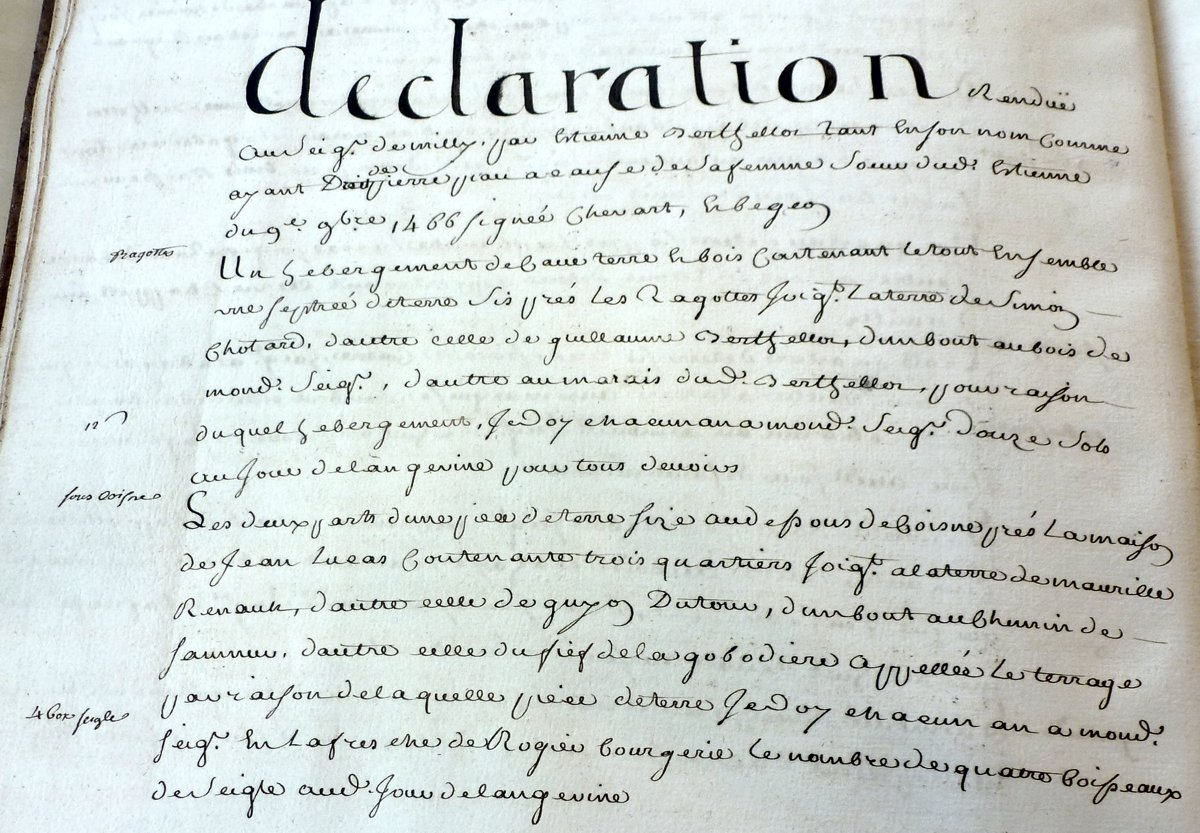 declaration Renduë
au Seigr. de milly, par Estienne Berthellot tant En son nom Comme
ayant Droit de pierre piau a cause de Sa femme Soeur dud. Estienne
du 9e. 9bre. 1466 signée Chevart, Et begeon
Ragottes
Un hebergement de Cave terre Et bois Contenant le tout Ensemble
une septrée de terre Sis prés les Ragottes Joigt. La terre de Simon
Chotard, d'autre celle de guillaume Berthellot, d'un bout au bois de
mond. Seigr., d'autre au marais dud. Berthellot, pour raison
12 s
duquel hebergement, Je doy chacun an a mond. Seigr. douze Sols
au Jour de langevine pour tous devoirs
sous Coisne
Les deux parts d'une piece de terre size au dessous de Coisne prés La maison
de Jean Lucas Contenante trois quartiers Joigt. a la terre de maurille
Renault, d'autre celle de guyon Dutour, d'un bout au Chemin de
Saumur, d'autre celle du fief de la gobodiere appellés Le terrage
par raison de laquelle piece de terre Je doy chacun an a mond.
4 box seigle
Seigr. En La fresche de Rogier bourgerie le nombre de quatre boisseaux
de Seigle aud. Jour de langevine